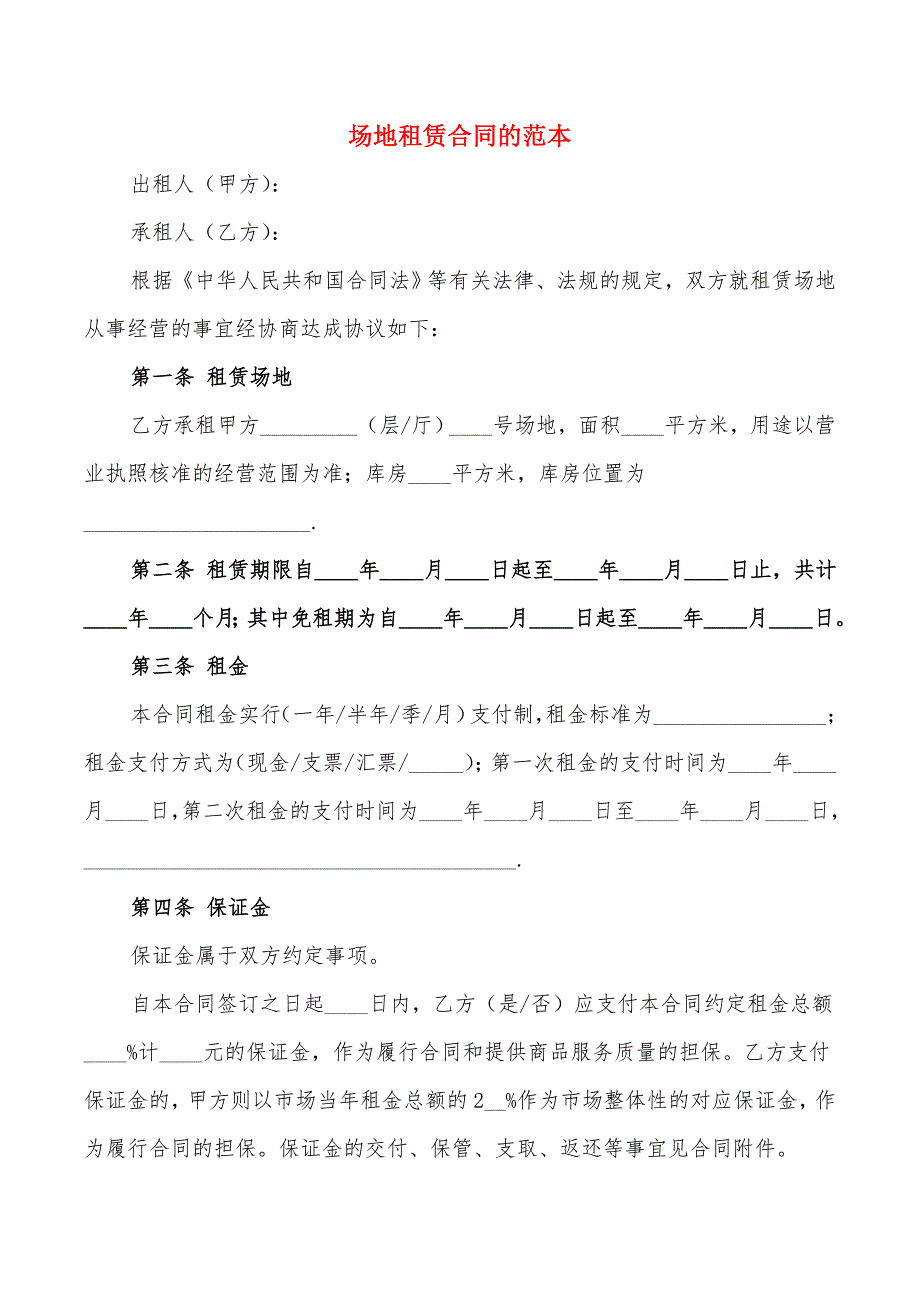 场地租赁合同的范本
出租人（甲方）：
承租人（乙方）：
根据《中华人民共和国合同法》等有关法律、法规的规定，双方就租赁场地
从事经营的事宜经协商达成协议如下：
第一条 租赁场地
乙方承租甲方_________（层/厅）____号场地，面积____平方米，用途以营
业执照核准的经营范围为准；库房____平方米，库房位置为
_____________________.
第二条 租赁期限自____年____月____日起至____年____月____日止，共计
____年____个月；其中免租期为自____年____月____日起至____年____月____日。
第三条 租金
本合同租金实行（一年/半年/季/月）支付制，租金标准为________________；
租金支付方式为（现金/支票/汇票/_____）；第一次租金的支付时间为____年____
月____日，第二次租金的支付时间为____年____月____日至____年____月____日，
________________________________________.
第四条 保证金
保证金属于双方约定事项。
自本合同签订之日起____日内，乙方（是/否）应支付本合同约定租金总额
____%计____元的保证金，作为履行合同和提供商品服务质量的担保。乙方支付
保证金的，甲方则以市场当年租金总额的2__%作为市场整体性的对应保证金，作
为履行合同的担保。保证金的交付、保管、支取、返还等事宜见合同附件。